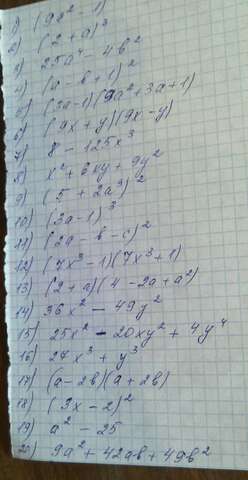 1) (9x² - 1)
2) (2 + a)³
3) 25a⁴ - 4b²
4) (a - b + 1)²
5) (3a-1)(9a²+3a+1)
6) (9x + y)(9x - y)
7) 8 - 125x³
8) x² + 6xy + 9y²
9) (5 + 2a³)²
10) (3a-1)³
11) (2a - b - c)²
12) (7x³-1)(7x³+1)
13) (2+a)(4-2a+a²)
14) 36x² - 49y²
15) 25x² - 20xy² + 4y⁴
16) 27x³ + y³
17) (a-2b)(a+2b)
18) (3x - 2)²
19) a² - 25
20) 9a² + 42ab + 49b²